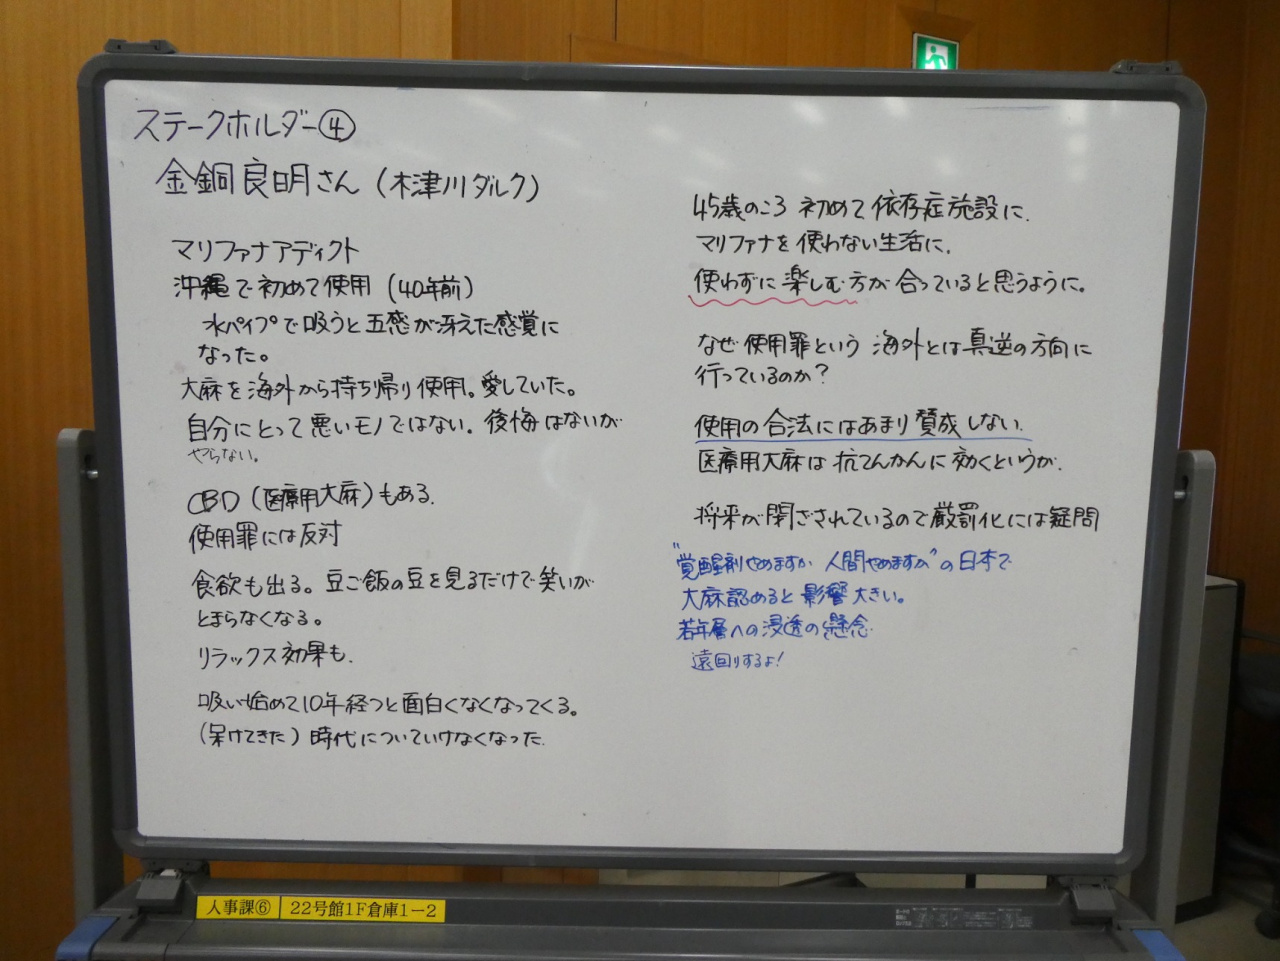 ステークホルダー④
金銅良明さん（木津川ダルク）
マリファナアディクト
沖縄で初めて使用（40年前）
水パイプで吸うと五感が冴えた感覚に
なった。
大麻を海外から持ち帰り使用。愛していた。
自分にとって悪いモノではない。後悔はないが
やらない。
CBD（医療用大麻）もある.
使用罪には反対
食欲も出る。豆ご飯の豆を見るだけで笑いが
とまらなくなる。
リラックス効果も.
吸い始めて10年経つと面白くなくなってくる。
（呆けてきた）時代についていけなくなった.
45歳のころ 初めて依存症施設に.
マリファナを使わない生活に.
使わずに楽しむ方が合っていると思うように。
なぜ使用罪という 海外とは真逆の方向に
行っているのか？
使用の合法にはあまり賛成しない.
医療用大麻は抗てんかんに効くというが.
将来が閉ざされているので厳罰化には疑問
"覚醒剤やめますか 人間やめますか"の日本で
大麻認めると影響大きい。
若年層への浸透の懸念
遠回りするよ！
人事課⑥ 22号館1F倉庫1－2